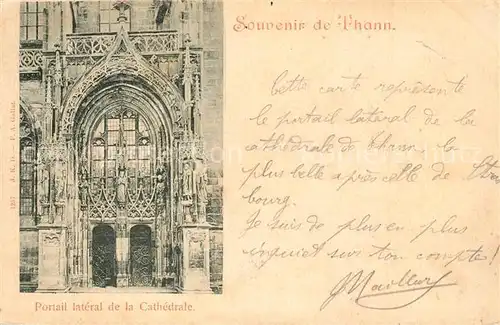 Souvenir de Thann.
Cette carte représente
le portail latéral de la
cathédrale de Thann, la
plus belle après celle de Stras
bourg.
Je suis de plus en plus
inquiet sur ton compte!
Portail latéral de la Cathédrale.